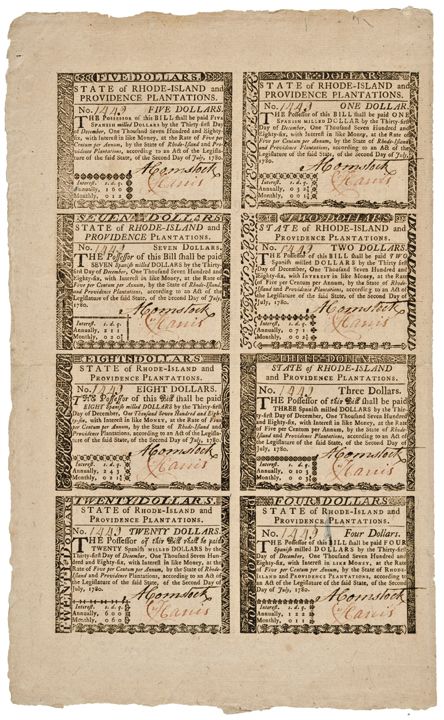 FIVE DOLLARS.
STATE of RHODE-ISLAND and
PROVIDENCE PLANTATIONS.
No. 1443 FIVE DOLLARS.
THE Possessor of this BILL shall be paid FIVE
SPANISH milled DOLLARS by the Thirty-first Day
of December, One Thousand Seven Hundred and Eighty-
six, with Interest in like Money, at the Rate of Five per
Centum per Annum, by the State of Rhode-Island and Pro-
vidence Plantations, according to an Act of the Legislature
of the said State, of the Second Day of July, 1780.
Interest. s. d. q.
Annually,
Monthly,
A Comstock
Harris
SEVEN DOLLARS
STATE of RHODE-ISLAND and
PROVIDENCE PLANTATIONS.
No. 1443 SEVEN DOLLARS.
THE Possessor of this Bill shall be paid
SEVEN Spanish milled DOLLARS by the Thirty-
first Day of December, One Thousand Seven Hundred and
Eighty-six, with Interest in like Money, at the Rate
of Five per Centum per Annum, by the State of Rhode-
Island and Providence Plantations, according to an Act of
the Legislature of the said State, of the Second Day of
July, 1780.
Interest. s. d. q.
Annually,
Monthly,
A Comstock
Harris
EIGHT DOLLARS.
STATE of RHODE-ISLAND and
PROVIDENCE PLANTATIONS.
No. 1443 EIGHT DOLLARS.
THE Possessor of this Bill shall be paid
EIGHT Spanish milled DOLLARS by the Thirty-first
Day of December, One Thousand Seven Hundred and Eighty-
six, with Interest in like MONEY, at the Rate of Five
per Centum per Annum, by the State of Rhode-Island and
Providence Plantations, according to an Act of the Legislature
of the said State, of the Second Day of July, 1780.
Interest. s. d. q.
Annually, 2 4 3
Monthly,
A Comstock
Harris
TWENTY DOLLARS.
STATE of RHODE-ISLAND and
PROVIDENCE PLANTATIONS.
No. 1443 TWENTY DOLLARS.
THE Possessor of this Bill shall be paid
TWENTY Spanish MILLED DOLLARS by the
Thirty-first Day of December, One Thousand Seven Hun-
dred and Eighty-six, with Interest in like Money, at the
Rate of Five per Centum per Annum, by the State of Rhode-
Island and Providence Plantations, according to an Act of
the Legislature of the said State, of the Second Day of
July, 1780.
Interest. s. d. q.
Annually, 6 0 0
Monthly, 0 6 0
A Comstock
Harris
ONE DOLLAR
STATE of RHODE-ISLAND and
PROVIDENCE PLANTATIONS.
No. 1443 ONE DOLLAR.
THE Possessor of this BILL shall be paid ONE
SPANISH milled DOLLAR by the Thirty-first
Day of December, One Thousand Seven Hundred and
Eighty-six, with Interest in like Money, at the Rate of Five
per Centum per Annum, by the State of Rhode-Island and
Providence Plantations, according to an Act of the Legislature
of the said State, of the Second Day of July, 1780.
Interest. s. d. q.
Annually,
Monthly,
A Comstock
Harris
TWO DOLLARS
STATE of RHODE-ISLAND and
PROVIDENCE PLANTATIONS.
No. 1443 TWO DOLLARS.
THE Possessor of this BILL shall be paid TWO
Spanish milled DOLLARS by the Thirty-first Day
of December, One Thousand Seven Hundred and
Eighty-six, with INTEREST in like Money, at the Rate of
Five per Centum per Annum, by the State of Rhode-Island
and Providence Plantations, according to an Act of
the Legislature of the said State, of the Second Day of
July, 1780.
Interest. s. d. q.
Annually,
Monthly,
A Comstock
Harris
THREE DOLLARS
STATE of RHODE-ISLAND
and PROVIDENCE PLANTATIONS.
No. 1443 Three Dollars.
THE Possessor of this Bill shall be paid
THREE Spanish milled DOLLARS by the Thir-
ty-first Day of December, One Thousand Seven Hundred
and Eighty-six, with Interest in like Money, at the Rate
of Five per Centum per Annum, by the State of Rhode-
Island and Providence Plantations, according to an Act of
the Legislature of the said State, of the Second Day of
July, 1780.
Interest. s. d. q.
Annually,
Monthly,
A Comstock
Harris
FOUR DOLLARS
STATE of RHODE-ISLAND and
PROVIDENCE PLANTATIONS.
No. 1443 Four Dollars.
THE Possessor of this BILL shall be paid FOUR
Spanish milled DOLLARS by the Thirty-first
Day of December, One Thousand Seven Hundred and
Eighty-six, with Interest in LIKE MONEY, at the Rate of
Five per Centum per Annum, by the State of RHODE-
ISLAND and PROVIDENCE PLANTATIONS, according to an Act
of the Legislature of the said State, of the Second Day of
July, 1780.
Interest. s. d. q.
Annually,
Monthly,
A Comstock
Harris